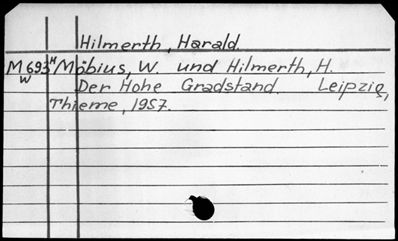 Hilmerth, Harald.
M693 H Möbius, W. und Hilmerth, H.
W Der Hohe Gradstand. Leipzig,
Thieme, 1957.